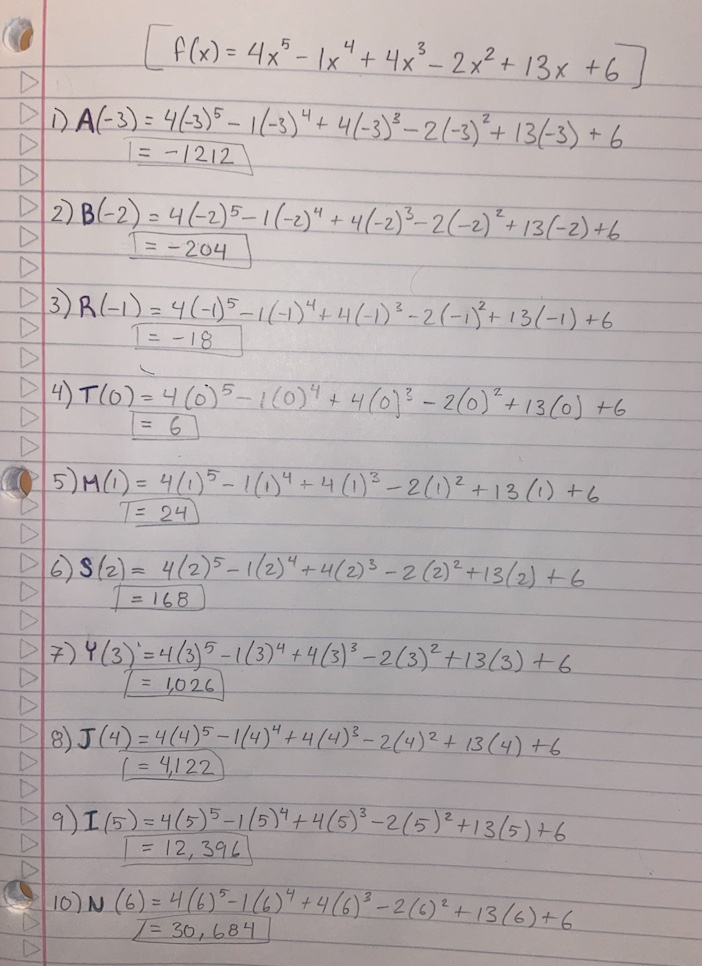 [f(x) = 4x⁵ - 1x⁴ + 4x³ - 2x² + 13x + 6]
1) A(-3) = 4(-3)⁵ - 1(-3)⁴ + 4(-3)³ - 2(-3)² + 13(-3) + 6
= -1212
2) B(-2) = 4(-2)⁵ - 1(-2)⁴ + 4(-2)³ - 2(-2)² + 13(-2) + 6
= -204
3) R(-1) = 4(-1)⁵ - 1(-1)⁴ + 4(-1)³ - 2(-1)² + 13(-1) + 6
= -18
4) T(0) = 4(0)⁵ - 1(0)⁴ + 4(0)³ - 2(0)² + 13(0) + 6
= 6
5) M(1) = 4(1)⁵ - 1(1)⁴ + 4(1)³ - 2(1)² + 13(1) + 6
= 24
6) S(2) = 4(2)⁵ - 1(2)⁴ + 4(2)³ - 2(2)² + 13(2) + 6
= 168
7) Y(3) = 4(3)⁵ - 1(3)⁴ + 4(3)³ - 2(3)² + 13(3) + 6
= 1,026
8) J(4) = 4(4)⁵ - 1(4)⁴ + 4(4)³ - 2(4)² + 13(4) + 6
= 4,122
9) I(5) = 4(5)⁵ - 1(5)⁴ + 4(5)³ - 2(5)² + 13(5) + 6
= 12,396
10) N(6) = 4(6)⁵ - 1(6)⁴ + 4(6)³ - 2(6)² + 13(6) + 6
= 30,684